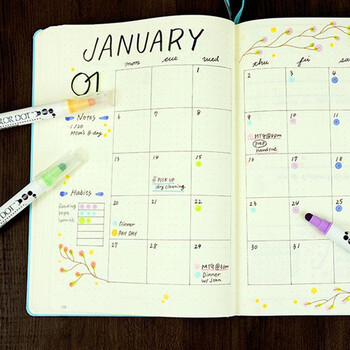 JANUARY
01
mon tue wed thu fri sa
1 2 3 4
COLOR DOT
Notes
1/20
Mom's B-day
6 7 8 9 10 11
MTG@2pm
13 14 15 16 17 18
PICK UP
dry cleaning
Habits
Reading
20 21 22 23 24 25
Dinner
PAY DAY
27 28 29 30 31
MTG@2pm
Dinner
w/ Joan